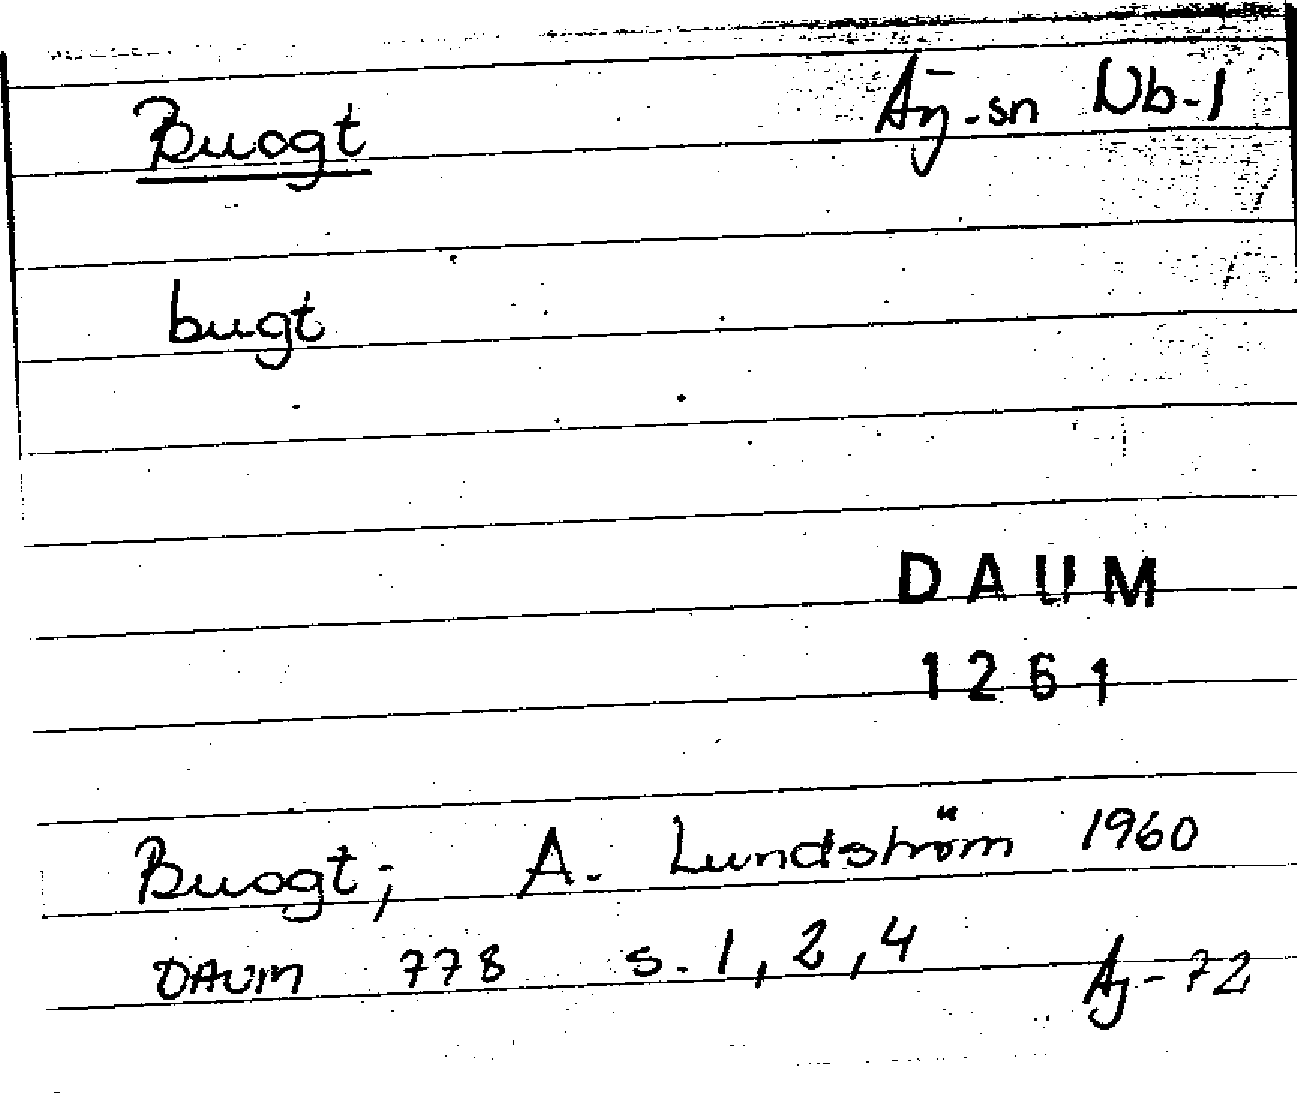 Buogt Aŋ-sn Nb-1
bugt
DAUM
1261
Buogt; A. Lundström 1960
DAUM 778 s. 1, 2, 4 Aj-72